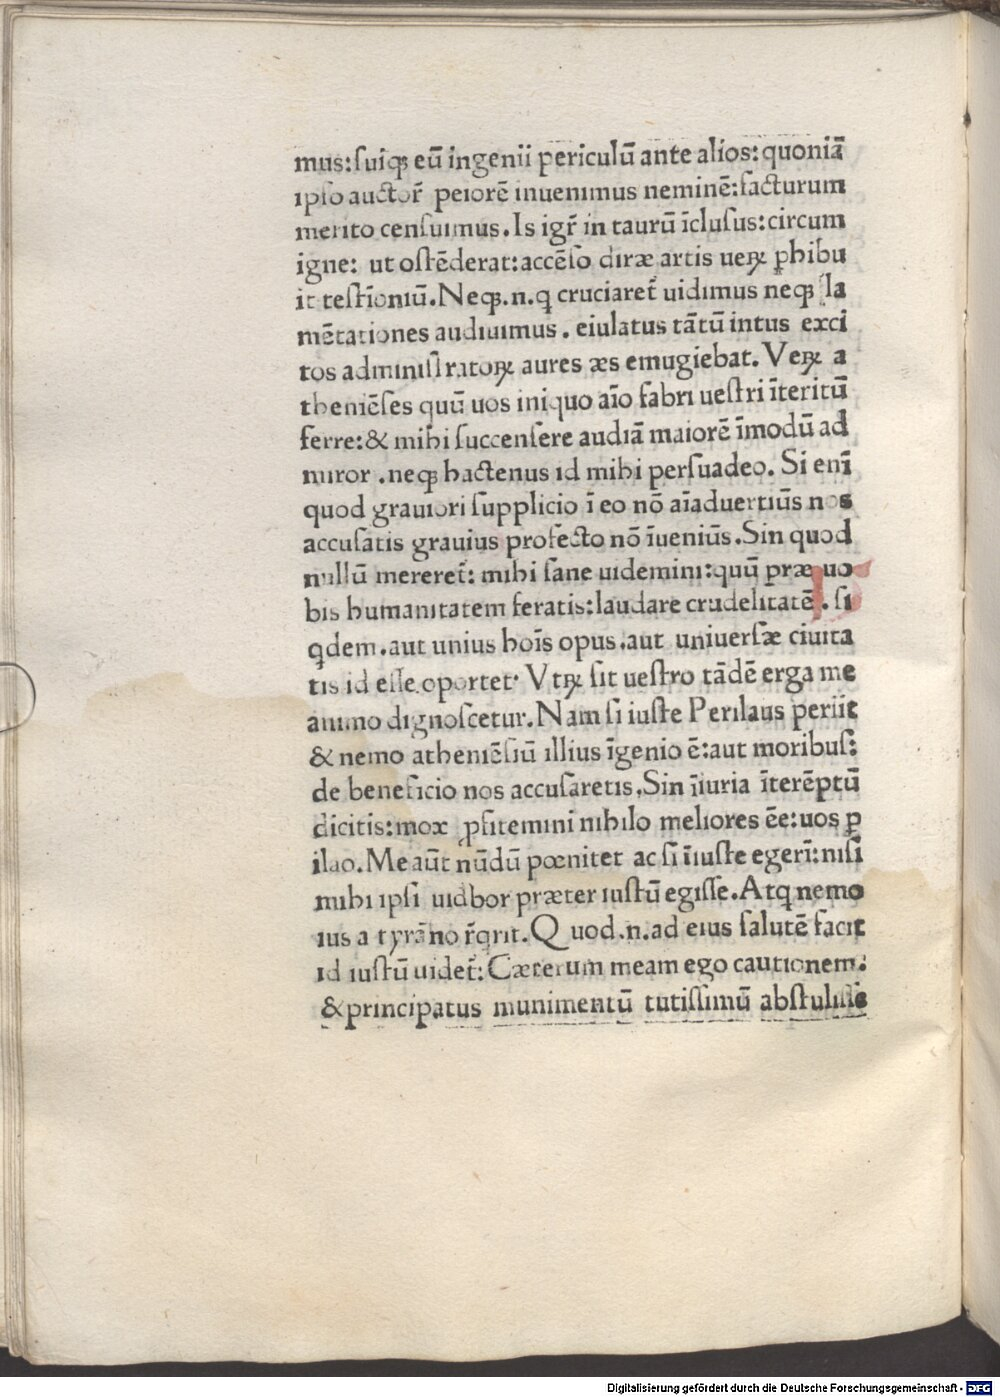 mus:ſuiqꝫ eū ingenii periculū ante alios:quoniā
ipſo auctor̄ peiorē inuenimus neminē:facturum
merito cenſuimus.Is igr̄ in taurū īcluſus:circum
igne: ut oſtēderat:accēſo diræ artis ueꝝ ꝓhibu
it teſtīoniū.Neqꝫ.n.q cruciaret̄ uidimus neqꝫ la
mētationes audiuimus. eiulatus tātū intus exci
tos adminiſtratoꝝ aures æs emugiebat. Veꝝ a
theniēſes quū uos iniquo aīo fabri ueſtri īteritū
ferre:& mihi ſuccenſere audiā maiorē īmodū ad
miror .neqꝫ hactenus id mihi perſuadeo. Si enī
quod grauiori ſupplicio ī eo nō aīaduertiūs nos
accuſatis grauius profecto nō īueniūs.Sin quod
nullū mereret̄: mihi ſane uidemini:quū præ uo
bis humanitatem feratis:laudare crudelitatē . ſi
qdem.aut unius hoīs opus.aut uniuerſæ ciuita
tis id eſſe oportet· Vtꝝ ſit ueſtro tādē erga me
animo dignoſcetur.Nam ſi iuſte Perilaus periit
& nemo atheniēſiū illius īgenio ē:aut moribus:
de beneficio nos accuſaretis.Sin īiuria īterēptū
dicitis:mox ꝓfitemini nihilo meliores ēe:uos ꝑ
ilao.Me aūt nūdū pœnitet ac ſi īiuſte egerī:niſi
mihi ipſi uidbor præter iuſtū egiſſe.Atq nemo
ius a tyrāno r̄qrit.Quod.n.ad eius ſalutē facit
id iuſtū uidet̄:Cæterum meam ego cautionem:
&principatus munimentū tutiſſimū abſtuliſſe
Digitalisierung gefördert durch die Deutsche Forschungsgemeinschaft - DFG